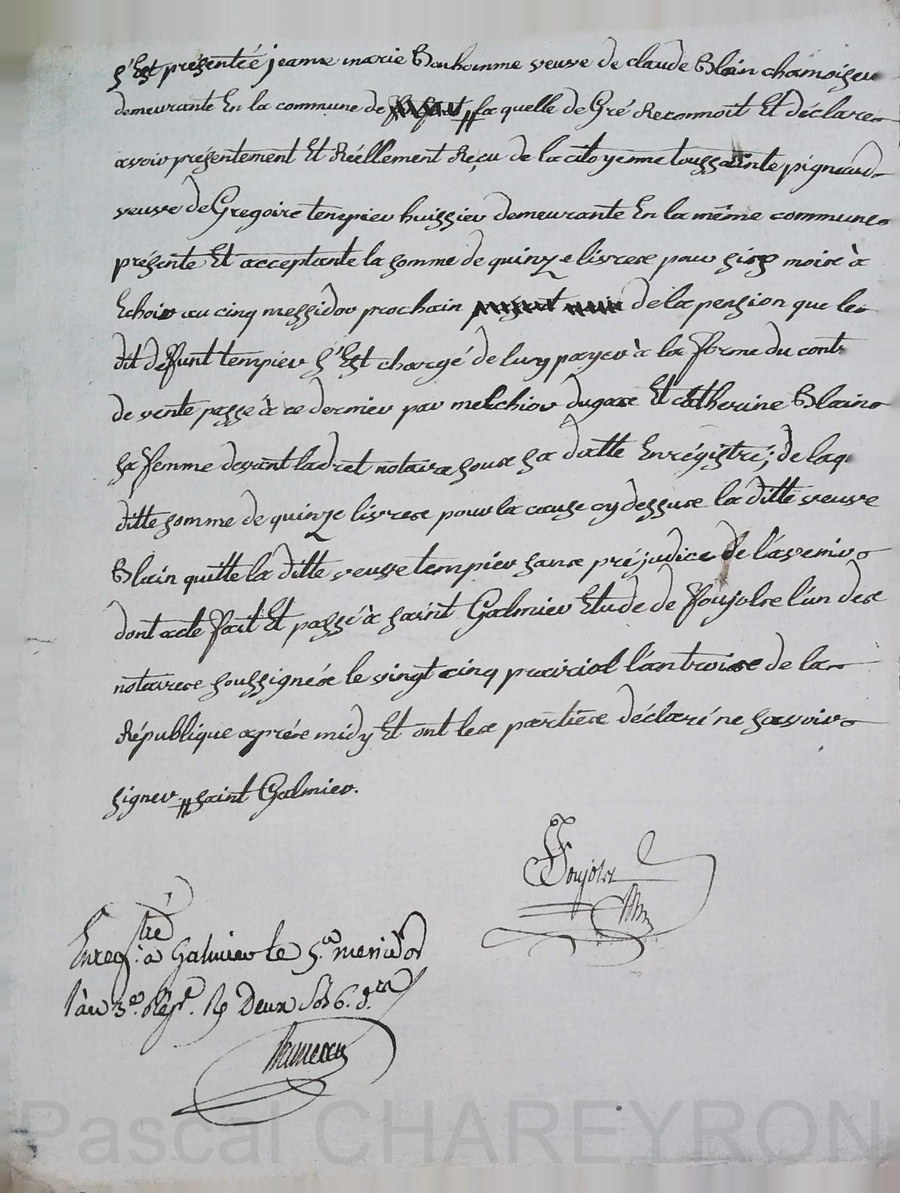 s'Est présentée jeanne marie Bonhomme veuve de claude Blain chamoiseur
demeurante En la commune de la quelle de Gré Reconnoit Et déclare
avoir présentement Et Réellement Reçu de la citoyenne toussainte pignaud
veuve de Gregoire tempier huissier demeurante En la même commune
présente Et acceptante la somme de quinze livres pour six mois à
Echoir au cinq messidor prochain de la pension que le
dit défunt tempier s'Est chargé de luy payer à la forme du cont
de vente passé à ce dernier par melchior dugas Et catherine Blain
sa femme devant ladret notaire sous sa datte Enrégistré; de laq
ditte somme de quinze livres pour la cause cy dessus la ditte veuve
Blain quitte la ditte veuve tempier sans préjudice de l'avenir
dont acte fait Et passé à saint Galmier Etude de foujols l'un des
notaires soussignés le vingt cinq prairial l'an trois de la
République après midy Et ont les parties déclaré ne savoir
signer // saint Galmier.
Foujols
Enregtré à Galmier le 5 messidor
l'an 3e Rep. R Deux sols 6 d.
Pascal CHAREYRON